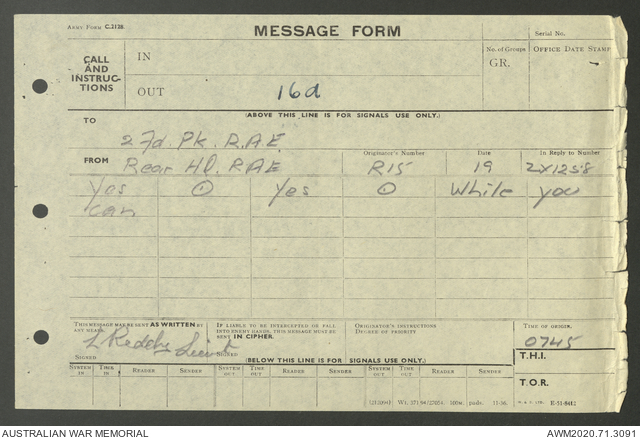 ARMY FORM C.2128
MESSAGE FORM
Serial No.
CALL AND INSTRUCTIONS
IN
No. of Groups GR.
OFFICE DATE STAMP
OUT
16d
(ABOVE THIS LINE IS FOR SIGNALS USE ONLY.)
TO
2 Fd. Pk. R.A.E.
FROM
Originator's Number
Date
In Reply to Number
Rear HQ. RAE
R15
19
2Y1258
Yes ⊙ Yes ⊙ While you
can
THIS MESSAGE MAY BE SENT AS WRITTEN BY ANY MEANS.
IF LIABLE TO BE INTERCEPTED OR FALL INTO ENEMY HANDS, THIS MESSAGE MUST BE SENT IN CIPHER.
ORIGINATOR'S INSTRUCTIONS
DEGREE OF PRIORITY
TIME OF ORIGIN.
0745
Lieut
SIGNED
SIGNED
(BELOW THIS LINE IS FOR SIGNALS USE ONLY.)
T.H.I.
SYSTEM IN
TIME IN
READER
SENDER
SYSTEM OUT
TIME OUT
READER
SENDER
SYSTEM OUT
TIME OUT
READER
SENDER
T.O.R.
AUSTRALIAN WAR MEMORIAL
AWM2020.71.3091